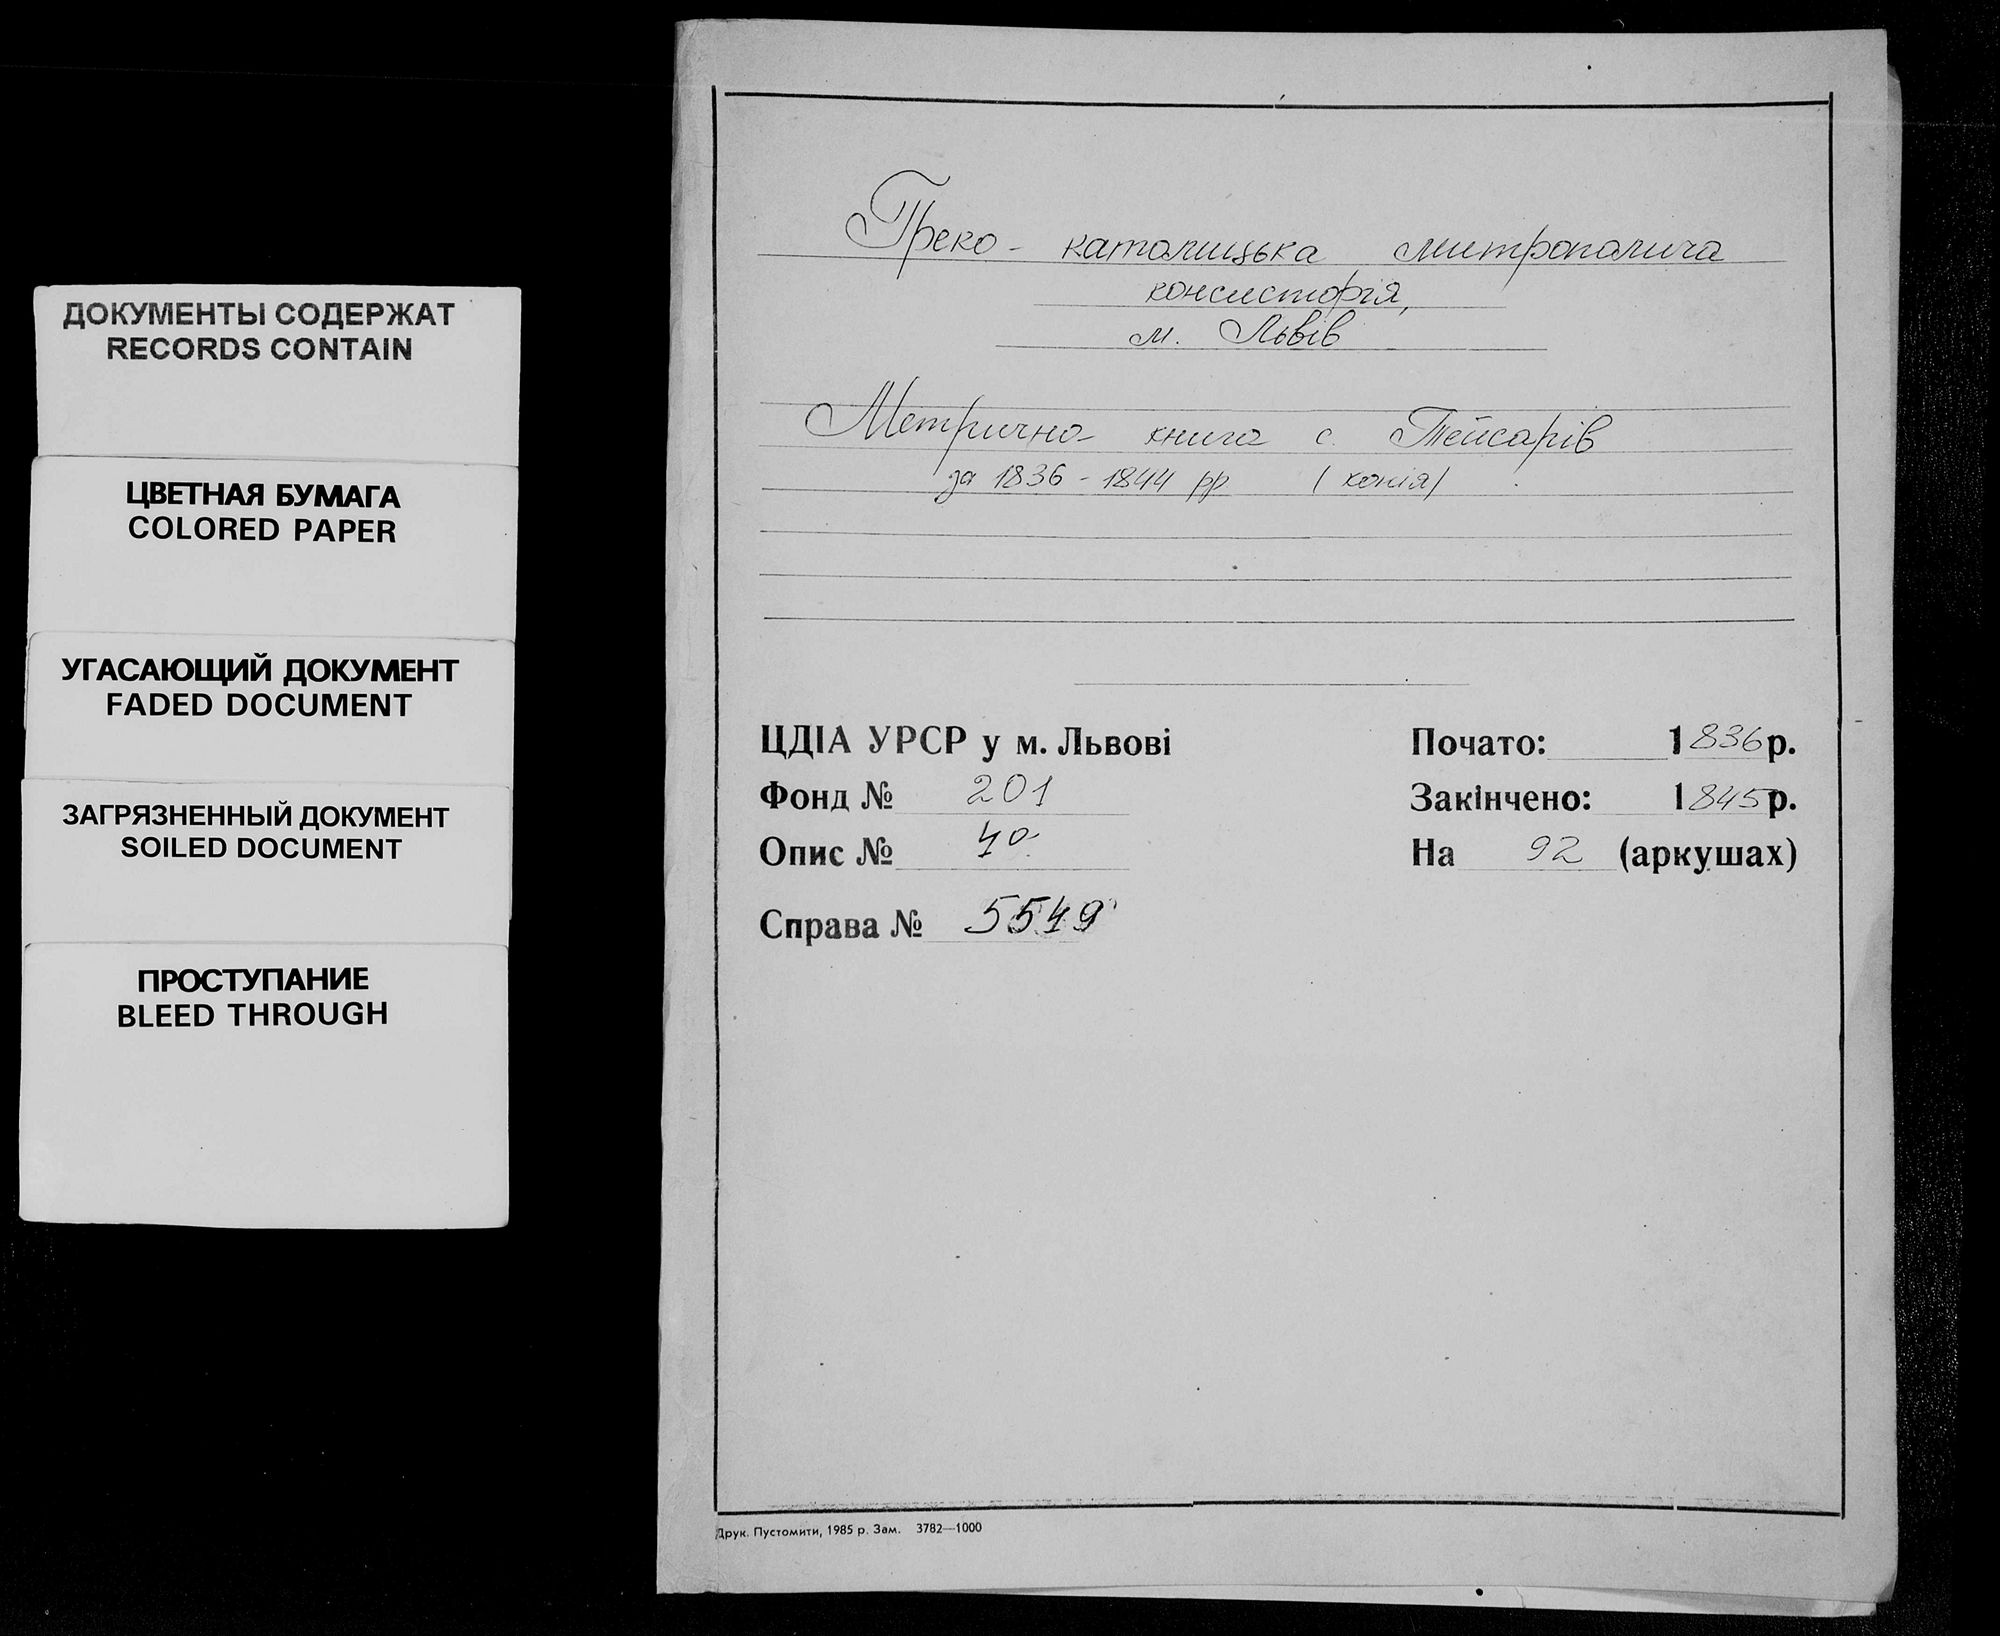 ДОКУМЕНТЫ СОДЕРЖАТ
RECORDS CONTAIN
ЦВЕТНАЯ БУМАГА
COLORED PAPER
УГАСАЮЩИЙ ДОКУМЕНТ
FADED DOCUMENT
ЗАГРЯЗНЕННЫЙ ДОКУМЕНТ
SOILED DOCUMENT
ПРОСТУПАНИЕ
BLEED THROUGH
Греко-католицька митрополича
консисторія,
м. Львів
Метрична книга с. Тейсарів
за 1836-1844 рр (копія)
ЦДІА УРСР у м. Львові
Фонд № 201
Опис № 4а
Справа № 5549
Почато: 1836 р.
Закінчено: 1845 р.
На 92 (аркушах)
Друк. Пустомити, 1985 р. Зам. 3782—1000